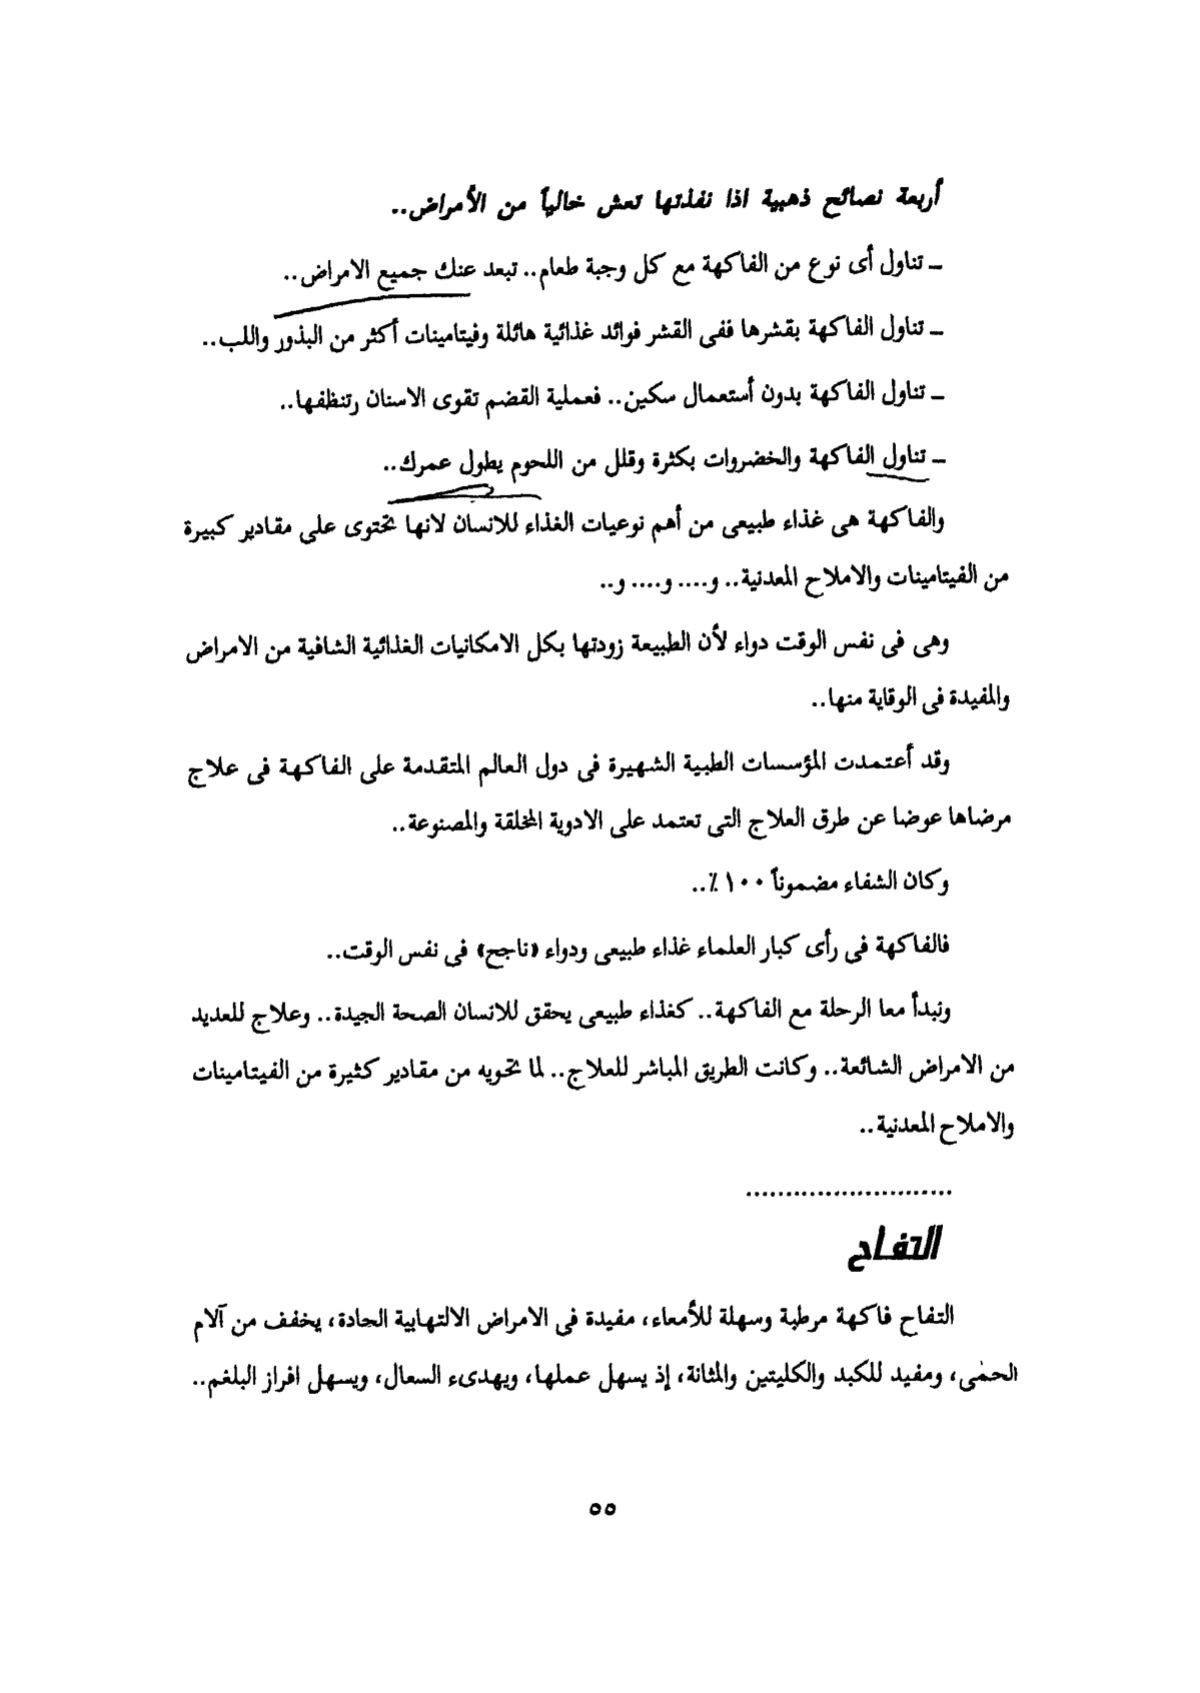 أربعة نصائح ذهبية اذا نفذتها تعش خالياً من الأمراض..
ــ تناول أى نوع من الفاكهة مع كل وجبة طعام.. تبعد عنك جميع الامراض..
ــ تناول الفاكهة بقشرها ففى القشر فوائد غذائية هائلة وفيتامينات أكثر من البذور واللب..
ــ تناول الفاكهة بدون أستعمال سكين.. فعملية القضم تقوى الاسنان رتنظفها..
ــ تناول الفاكهة والخضروات بكثرة وقلل من اللحوم يطول عمرك..
والفاكهة هى غذاء طبيعى من أهم نوعيات الغذاء للانسان لانها تحتوى على مقادير كبيرة
من الفيتامينات والاملاح المعدنية.. و.... و.... و..
وهى فى نفس الوقت دواء لأن الطبيعة زودتها بكل الامكانيات الغذائية الشافية من الامراض
والمفيدة فى الوقاية منها..
وقد أعتمدت المؤسسات الطبية الشهيرة فى دول العالم المتقدمة على الفاكهة فى علاج
مرضاها عوضا عن طرق العلاج التى تعتمد على الادوية المخلقة والمصنوعة..
وكان الشفاء مضموناً ١٠٠ ٪..
فالفاكهة فى رأى كبار العلماء غذاء طبيعى ودواء «ناجح» فى نفس الوقت..
ونبدأ معا الرحلة مع الفاكهة.. كغذاء طبيعى يحقق للانسان الصحة الجيدة.. وعلاج للعديد
من الامراض الشائعة.. وكانت الطريق المباشر للعلاج.. لما تحويه من مقادير كثيرة من الفيتامينات
والاملاح المعدنية..
..........................
التفاح
التفاح فاكهة مرطبة وسهلة للأمعاء، مفيدة فى الامراض الالتهابية الحادة، يخفف من آلام
الحمى، ومفيد للكبد والكليتين والمثانة، إذ يسهل عملها، ويهدىء السعال، ويسهل افراز البلغم..
٥٥